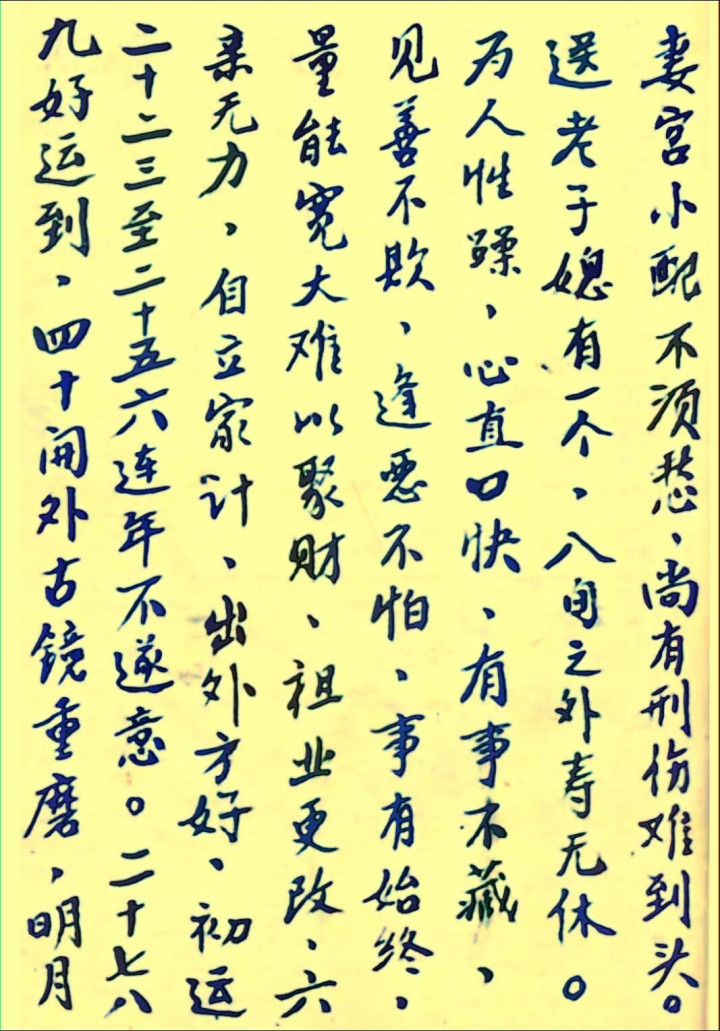 妻宫小配不须愁、尚有刑伤难到头。
送老子媳有一个、八旬之外寿无休。
为人性躁、心直口快、有事不藏、
见善不欺、逢恶不怕、事有始终、
量能宽大难以聚财、祖业更改、六
亲无力、自立家计、出外方好、初运
二十二三至二十五六连年不遂意。二十七八
九好运到、四十开外古镜重磨、明月